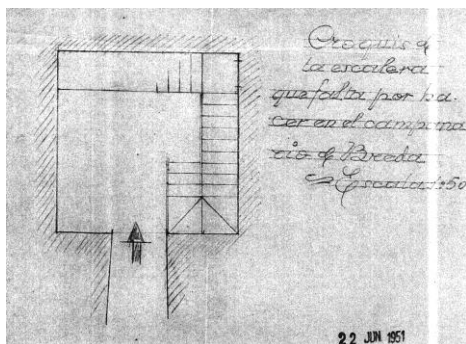 Croquis de
la escalera
que falta por ha-
cer en el campana
rio de Breda
Escala 1:50
22 JUN 1951